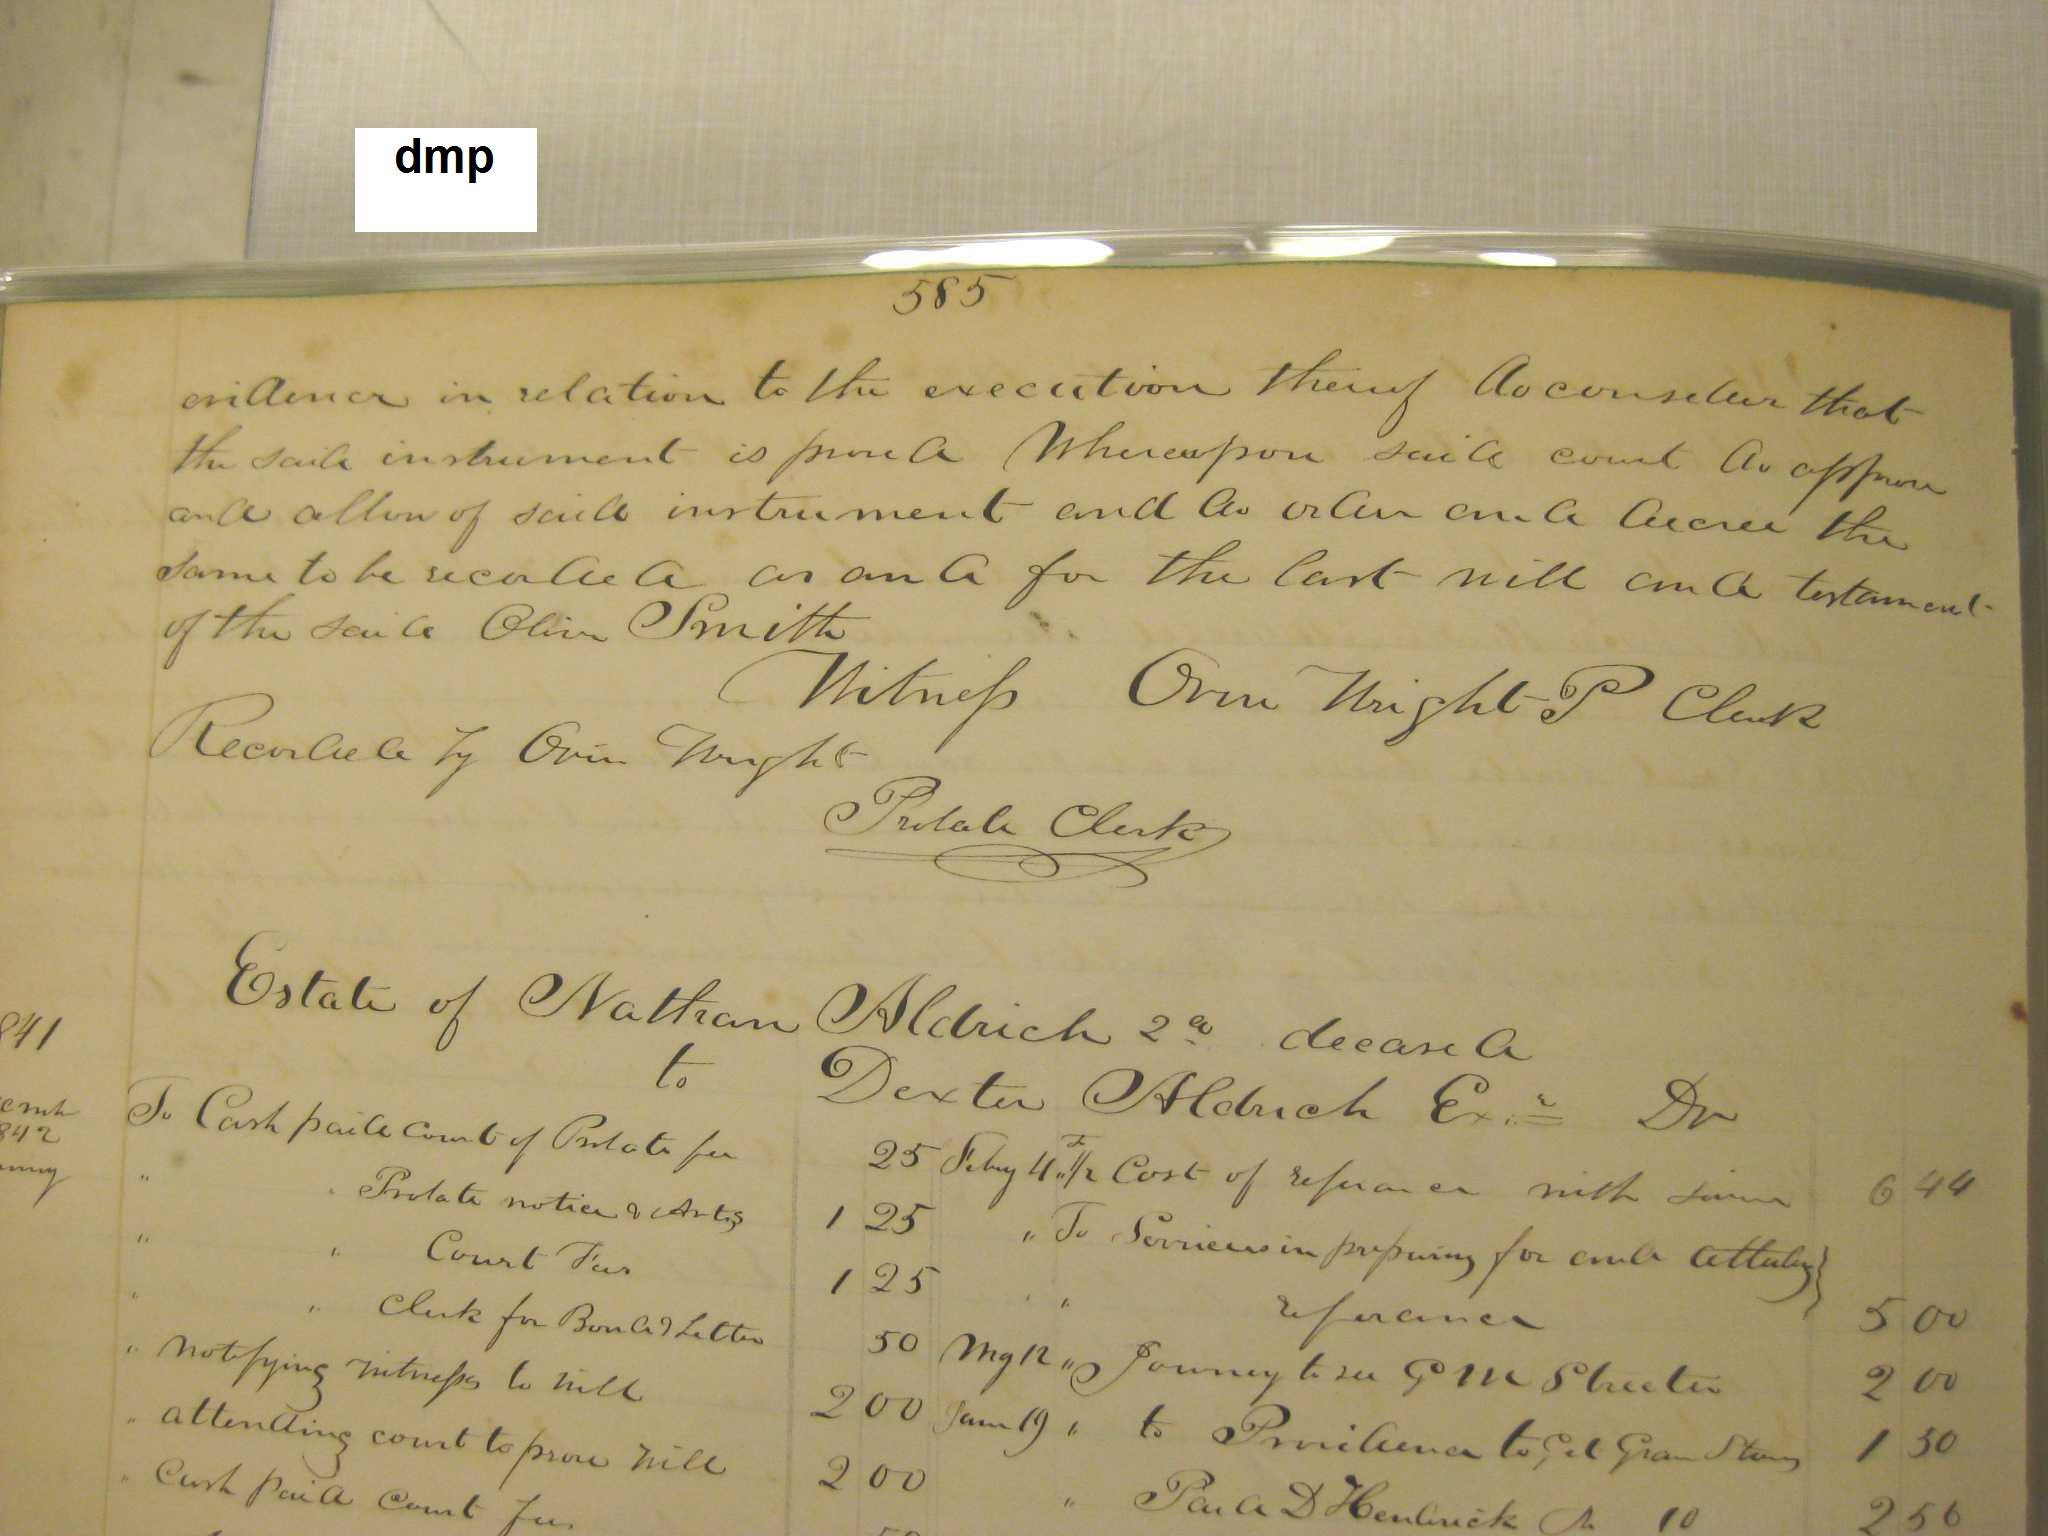 dmp
585
evidence in relation to the execution thereof do consider that
the said instrument is proved Whereupon said court do approve
and allow of said instrument and do order and decree the
same to be recorded as and for the last will and testament
of the said Olive Smith
Witness Orin Wright P Clerk
Recorded by Orin Wright
Probate Clerk
Estate of Nathan Aldrich 2d deceased
to Dexter Aldrich Exr Dr
841
842
To Cash paid court of Probate fee 25
" " Probate notice & 1 25
" " Court Fees 1 25
" " Clerk for Bond & Letter 50
" notifying witness to will 2 00
" attending court to prove will 2 00
" Cash paid Court fee
Feby 4 " Cost of referance with 6 44
" To Services in preparing for and
" referance 5 00
" Journey to see G M Streeter 2 00
19 " to Providence to Get Grave Stones 1 50
" Paid D Hendrick 10 2 50